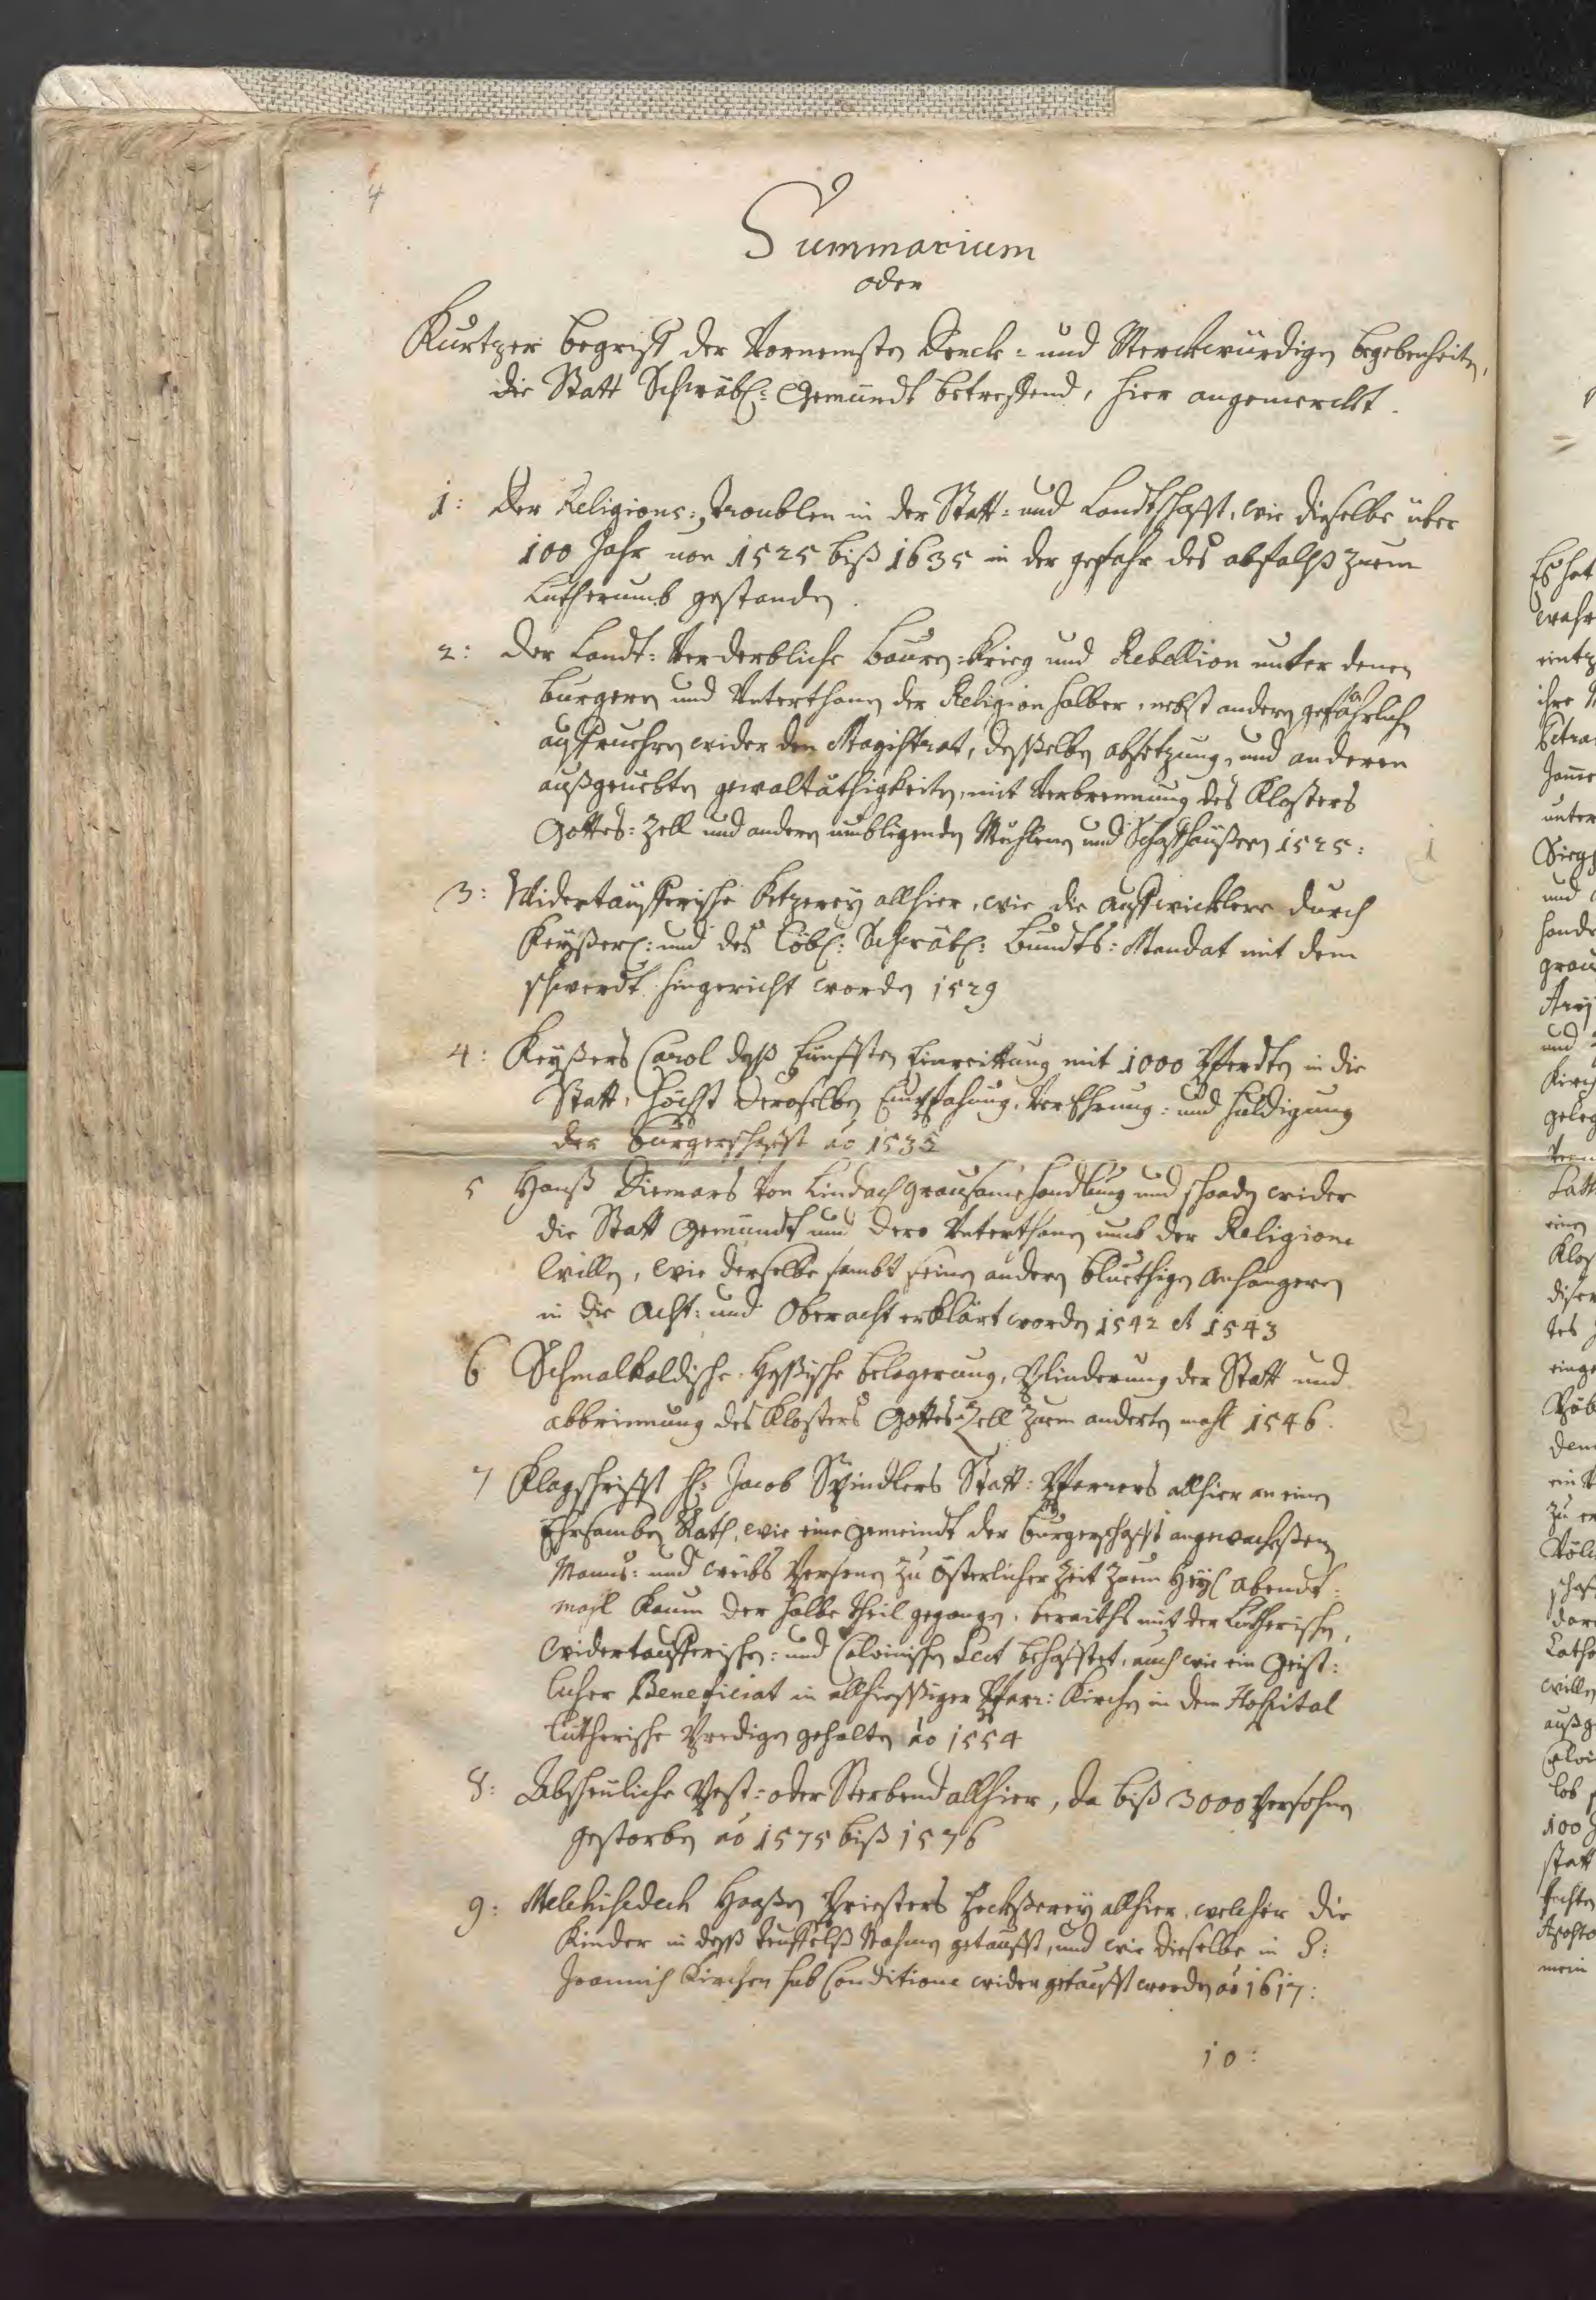 4
Summarium
oder
Kurtzer begriff der Vornemsten Denck= und Merckwürdigen begebenheiten,
die Statt Schwäbl: Gemündt betreffend, hier angemerckt.
1: Der Religions=troublen in der Statt= und Landtschafft, wie dieselbe über
100 Jahr von 1525 biß 1635 in der gefahr des abfalß zum
Lutherumb gestanden.
2: Der Landt=Verderbliche Bauren=Krieg und Rebellion unter denen
Burgeren und Unterthanen der Religion halber, nebst anderen gefährlichen
auffruehren wider den Magistrat, desselben absetzung, und anderen
außgeuebten gewaltäthigkeiten, mit Verbrennung des Klosters
Gottes=Zell und anderen umbligenden Muhlenen und Schaffhäußeren 1525:
1
3: Widertäufferische Ketzerey allhier, wie die auffwicklere durch
Keyßerl: und des Löbl: Schwäbl: Bundts=Mandat mit dem
schwerdt hingericht worden 1529
4: Keyßers Carol deß Fünfften Einreittung mit 1000 Pferdten in die
Statt, Höchst Deroselben Empfahung, Verehrung= und Huldigung
der Burgerschafft ao 1532
5 Hanß Diemars Von Lindach grausame handlung und schaaden wider
die Statt Gemündt und dero Unterthanen umb der Religions
willen, wie derselbe sambt seinen anderen bluethigen anhängeren
in die Acht= und Oberacht erklärt worden 1542 et 1543
6 Schmalkaldische Hessische belagerung, Plinderung der Statt und
abbrennung des Klosters Gottes=Zell zum anderten mahl 1546.
2
7 Klagschrifft H: Jacob Spindlers Statt=Pfarrers allhier an einen
Ehrsamben Rath, wie eine gemeindt der burgerschafft angewachsßenen
Manns= und weibs Persohnen zu Österlicher Zeit zum Heyl Abendt=
mahl kaum der halbe theil gegangen, beraiths mit der Lutherischen,
widertaufferischen= und Calvinischen Sect behafftet, auch wie ein Geist=
licher Beneficiat in allhießiger Pfarr=Kirchen in dem Hospital
Lutherische Predigen gehalten ao 1554
8: Abscheuliche Pest= oder Sterbend allhier, da biß 3000 Persohnen
gestorben ao 1575 biß 1576
9: Melchisedech Haaßen Priesters Hechßerey allhier, welcher die
Kinder in deß teuffelß Nahmen getaufft, und wie dieselbe in S:
Joannis Kirchen sub Conditione wider getaufft worden ao 1617:
10: